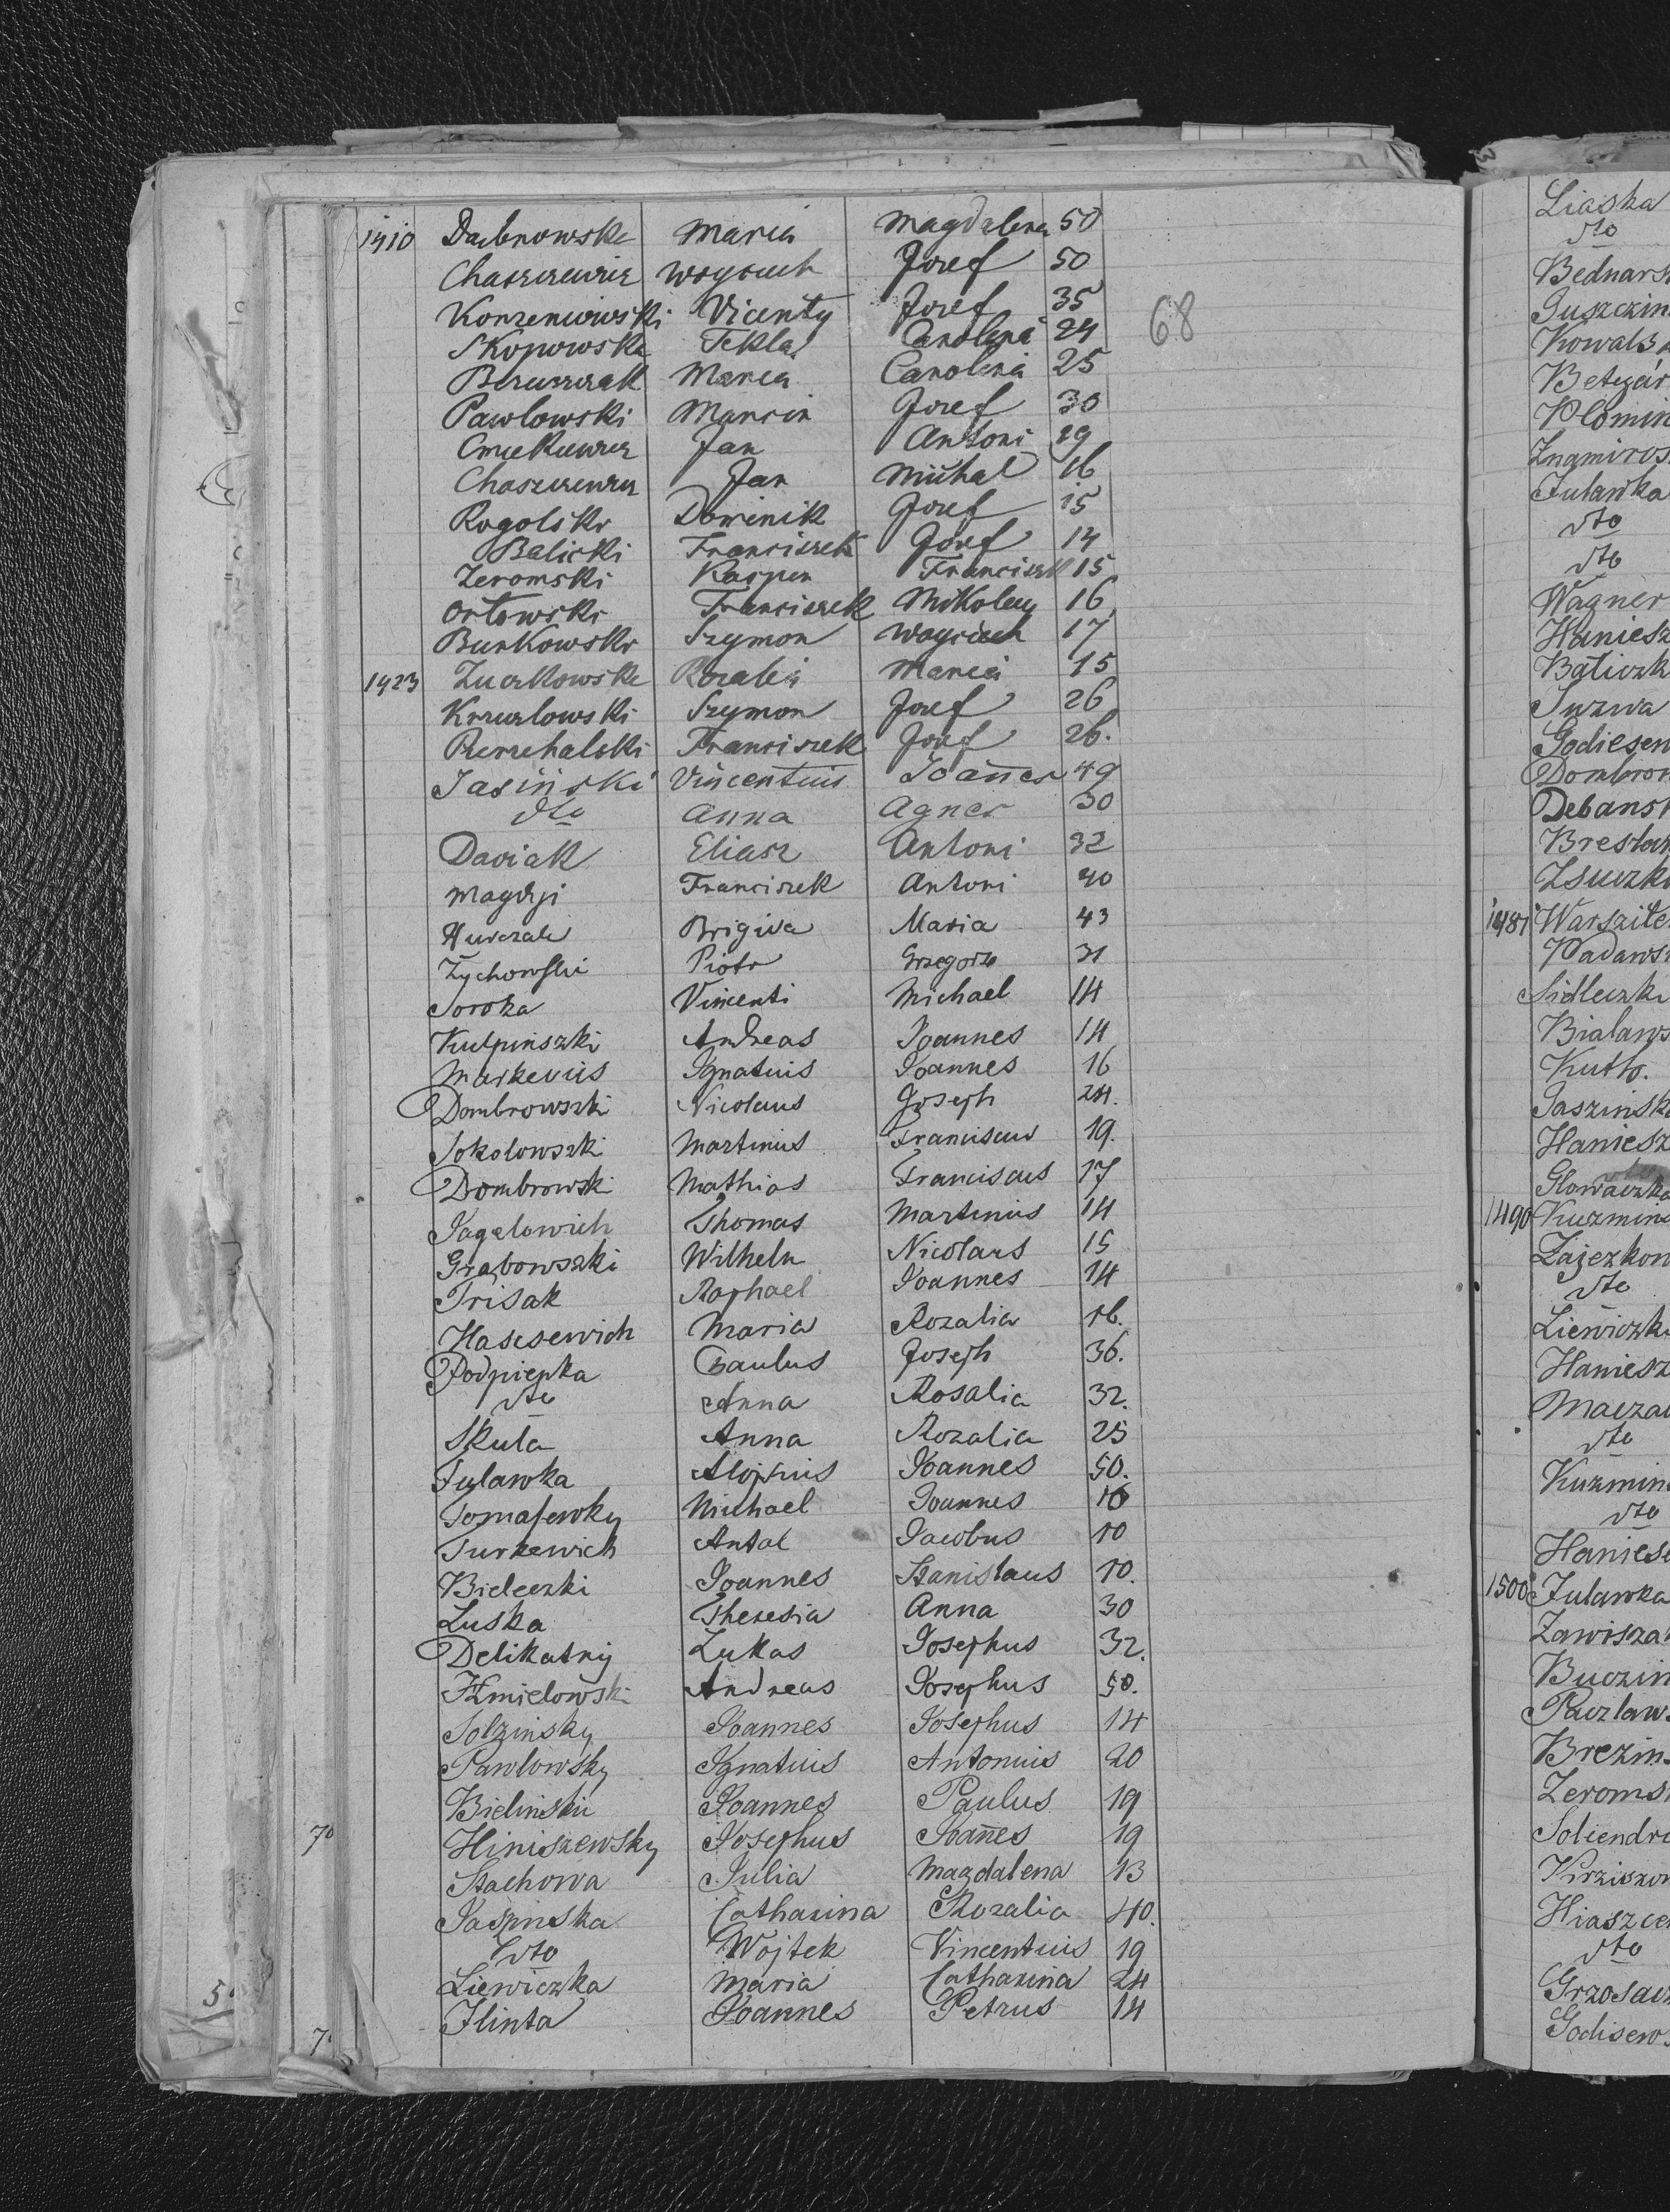 1410 Dąbrowska Maria Magdalena 50
Chaszczewicz Woyciech Josef 50
Korzeniowski Vicenty Josef 35
68
Skopowska Tekla Carolina 24
Bzruszczak Maria Carolina 25
Pawlowski Marcin Josef 30
Cmielewicz Jan Antoni 29
Chaszczewicz Jan Michal 16
Rogolski Dominik Josef 15
Balicki Franciszek Josef 14
Zeromski Kasper Franciszk 15
Orłowski Franciszek Mikolay 16
Burkowski Szymon Woyciech 17
1423 Zuczkowska Rozalia Maria 15
Krzuzlowski Szymon Josef 26
Franciszek Josef 26.
Jasiński Vincentius Joanes 49
dto Anna Agnes 30
Daviak Eliasz Antoni 32
Magdzi Franciszek Antoni 40
Hurczala Brigida Maria 43
Żychowski Piotr Grzegorz 31
Soroka Vincenti Michael 14
Kulpinszki Andreas Joannes 14
Markevits Ignatius Joannes 16
Dombrowszki Nicolaus Joseph 24.
Sokolowszki Martinus Franciscus 19.
Dombrowski Mathias Franciscus 17
Jagelowich Thomas Martinus 14
Grabowszki Wilhelm Nicolaus 15
Trisak Raphael Joannes 14
Hascsewich Maria Rozalia 16.
Podpiepka Paulus Joseph 36.
dto Anna Rosalia 32.
Skula Anna Rozalia 25
Julawka Alojsius Joannes 50.
Tomasewky Michael Joannes 16
Turkewich Antal Jacobus 10
Bieleczki Joannes Stanislaus 10.
Luska Theresia Anna 30
Delikatnij Lukas Josephus 32.
Hzmielowski Andreas Josephus 50.
Solzinsky Joannes Josephus 14
Pawlowsky Ignatius Antonius 20
Bielinskii Joannes Paulus 19
70 Hiniszewsky Josephus Joanes 19
Stachowa Julia Magdalena 13
Jaspnska Catharina Rozalia 40.
dto Wojtek Vincentius 19
Liewiczka Maria Catharina 24
Hlinta Joannes Petrus 14
5
7
Liaska
dto
Bednars
Guszczin
Kowalsz
Betegár
Plomin
Zngmiros
Julawka
dto
dto
Wagner
Haniesz
Baliczk
Suzwa
Godiesen
Dombron
Debansk
Breslan
Zsuczko
1481 Warszite
Wadawsz
Sidleczki
Bialaws
Kutto.
Jaszinsk
Haniesz
Glowaczka
1490 Kuzmins
Zajezkow
dto
Liewiczk
Haniesz
Maczal
dto
Kuzmin
dto
Haniesc
1500 Julawka
Zawisza
Buczin
Paczlaws
Brezins
Zeroms
Soliendr
Kirziszon
Hiaszce
dto
Grzosacz
Godisews